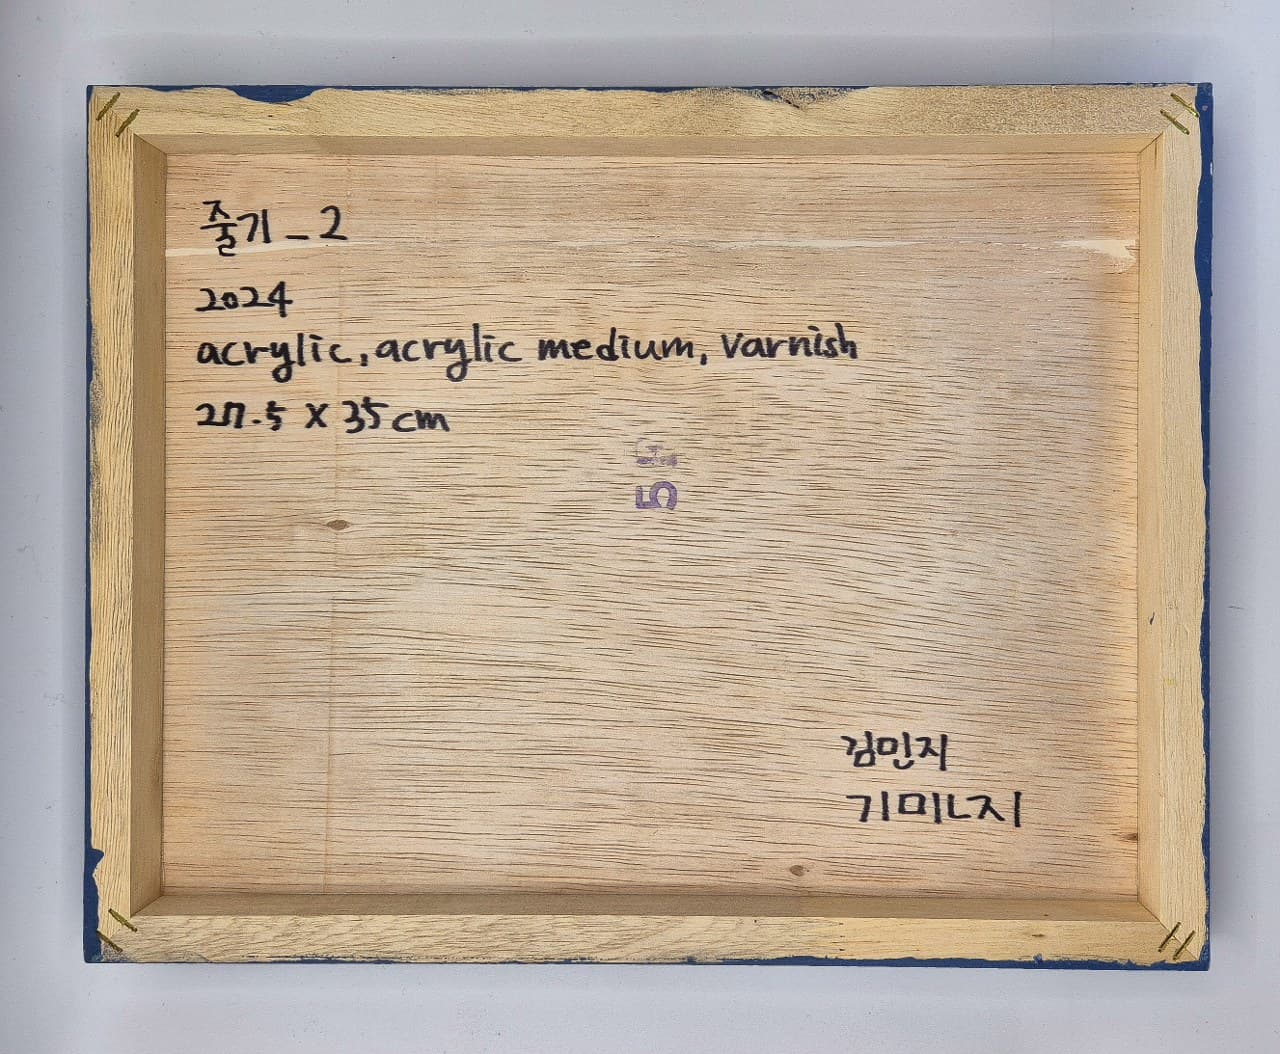 줄기_2
2024
acrylic, acrylic medium, varnish
27.5 X 35 cm
5F
김민지
기미ㄴ지